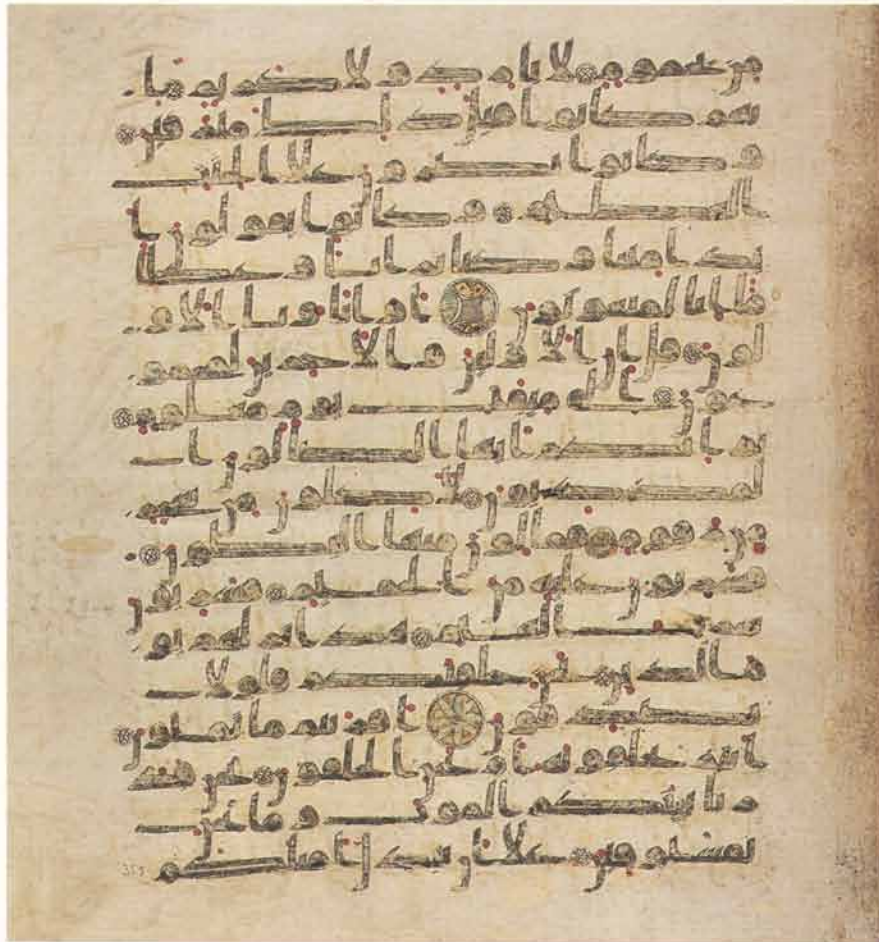 من يحموم لا بارد ولا كريم ا
نهم كانوا قبل ذلك مترفين
وكانوا يصرون على الحنث
العظيم وكانوا يقولون ا
ئذا متنا وكنا ترابا وعظا
ما انا لمبعوثون اواباونا الاو
لون قل ان الاولين والاخرين لمجمو
عون الى ميقت يوم معلوم
ثم انكم ايها الضالون ا
لمكذبون لاكلون من شجر
من زقوم فمالون منها البطون
فشربون عليه من الحميم فشربون
شرب الهيم هذا نزلهم يو
م الدين نحن خلقنكم فلولا
تصدقون افريتم ما تمنون
انتم تخلقونه ام نحن الخلقون نحن قد
رنا بينكم الموت وما نحن
بمسبوقين على ان نبدل امثلكم